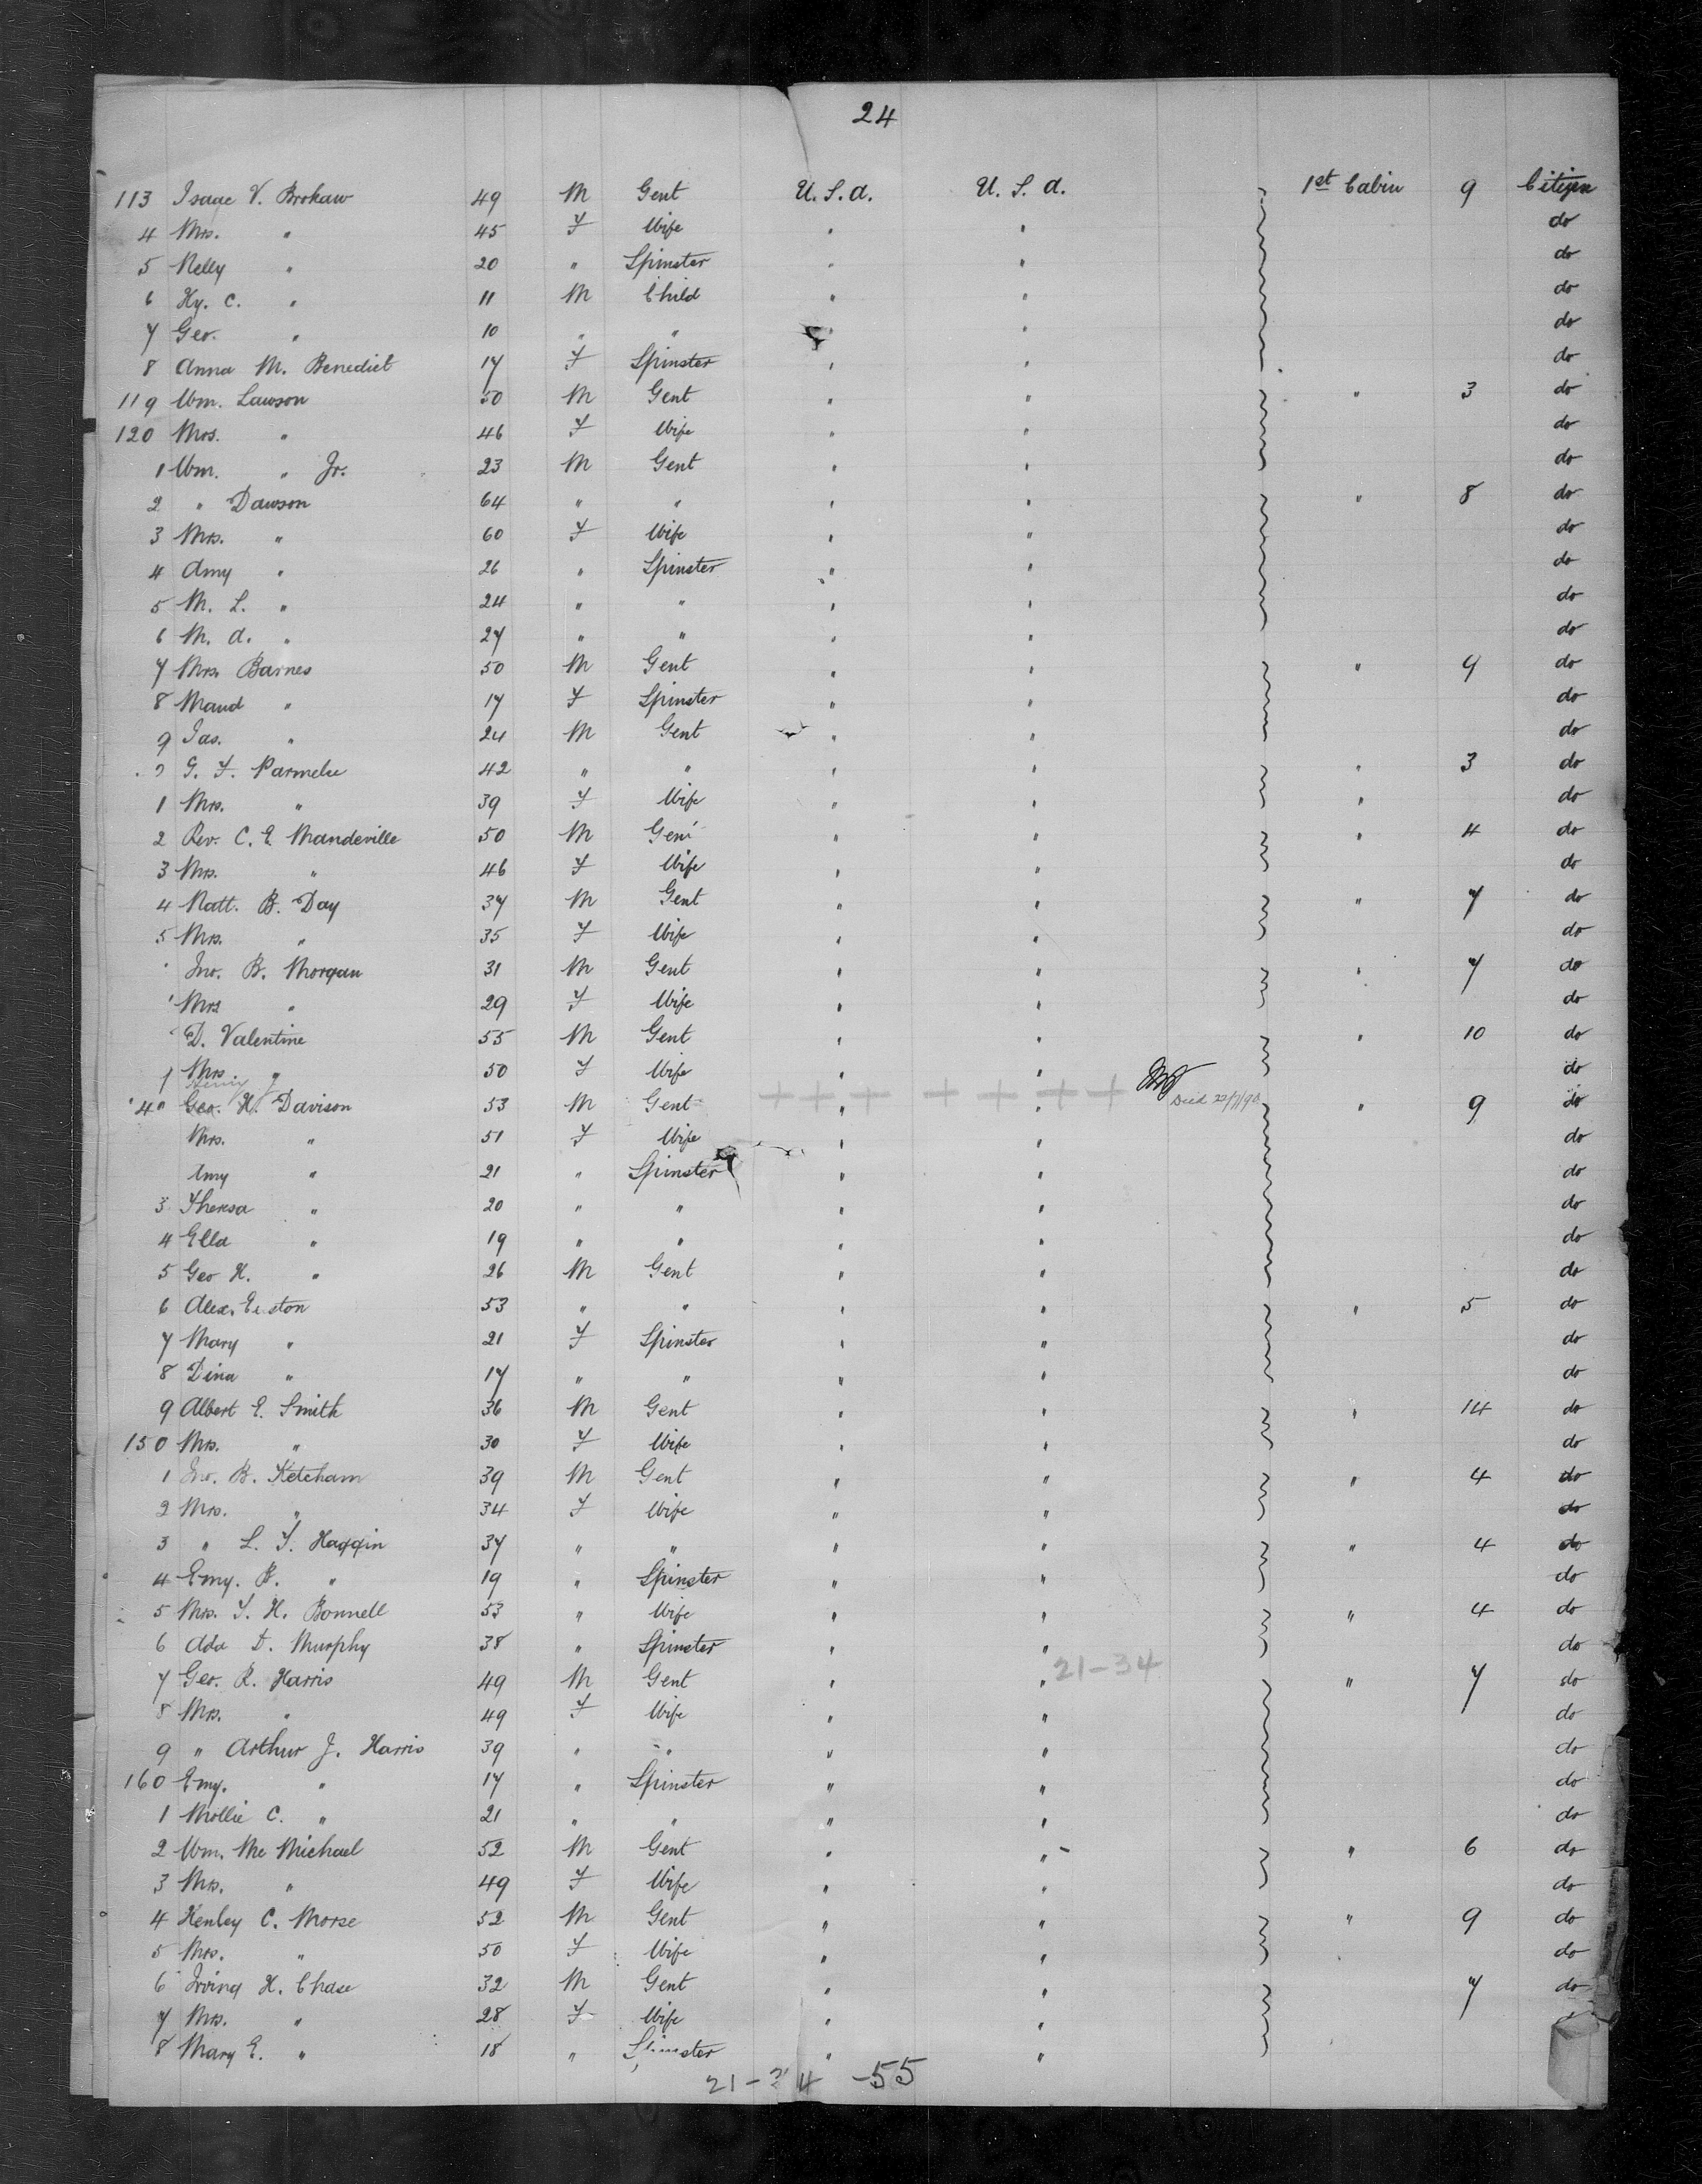 24
113 Isaac V. Brokaw 49 M Gent U.S.A. U.S.A. 1st Cabin 9 Citizen
4 Mrs. " 45 F Wife " " do
5 Nelly " 20 " Spinster " " do
6 Hy. C. " 11 M Child " " do
7 Geo. " 10 " " " " do
8 Anna M. Benedict 17 F Spinster " " do
119 Wm. Lawson 50 M Gent " " " 3 do
120 Mrs. " 46 F Wife " " do
1 Wm. " Jr. 23 M Gent " " do
2 " Dawson 64 " " " " " 8 do
3 Mrs. " 60 F Wife " " do
4 Amy " 26 " Spinster " " do
5 M. L. " 24 " " " " do
6 M. A. " 27 " " " " do
7 Mrs. Barnes 50 M Gent " " " 9 do
8 Maud " 17 F Spinster " " do
9 Jas. " 24 M Gent " " do
G. F. Parmelee 42 " " " " " 3 do
1 Mrs. " 39 F Wife " " " do
2 Rev. C. E. Mandeville 50 M Gent " " " 4 do
3 Mrs. " 46 F Wife " " do
4 Natt. B. Day 37 M Gent " " " 7 do
5 Mrs. " 35 F Wife " " do
Jno. B. Morgan 31 M Gent " " " 7 do
Mrs " 29 F Wife " " do
D. Valentine 55 M Gent " " " 10 do
Mrs. " 50 F Wife " " do
Henry J
Geo. H. Davison 53 M Gent + + + + + + + " " Died 22/7/90 " 9 do
Mrs. " 51 F Wife " " do
Amy " 21 " Spinster " " do
3 Theresa " 20 " " " " do
4 Ella " 19 " " " " do
5 Geo H. " 26 M Gent " " do
6 Alex. Easton 53 " " " " " 5 do
7 Mary " 21 F Spinster " " do
8 Dina " 17 " " " " do
9 Albert E. Smith 36 M Gent " " " 14 do
150 Mrs. " 30 F Wife " " do
1 Jno. B. Ketcham 39 M Gent " " " 4 do
2 Mrs. " 34 F Wife " " do
3 " L. T. Haggin 37 " " " " " 4 do
4 Emy. B. " 19 " Spinster " " do
5 Mrs. T. H. Bonnell 53 " Wife " " " 4 do
6 Ada D. Murphy 38 " Spinster " " do
21-34
7 Geo. R. Harris 49 M Gent " " " 7 do
8 Mrs. " 49 F Wife " " do
9 " Arthur J. Harris 39 " " " " do
160 Emy. " 17 " Spinster " " do
1 Mollie C. " 21 " " " " do
2 Wm. Mc Michael 52 M Gent " " " 6 do
3 Mrs. " 49 F Wife " " do
4 Henley C. Morse 52 M Gent " " " 9 do
5 Mrs. " 50 F Wife " " do
6 Irving H. Chase 32 M Gent " " 7 do
7 Mrs. " 28 F Wife " "
8 Mary E. " 18 " Spinster " "
21-34 -55